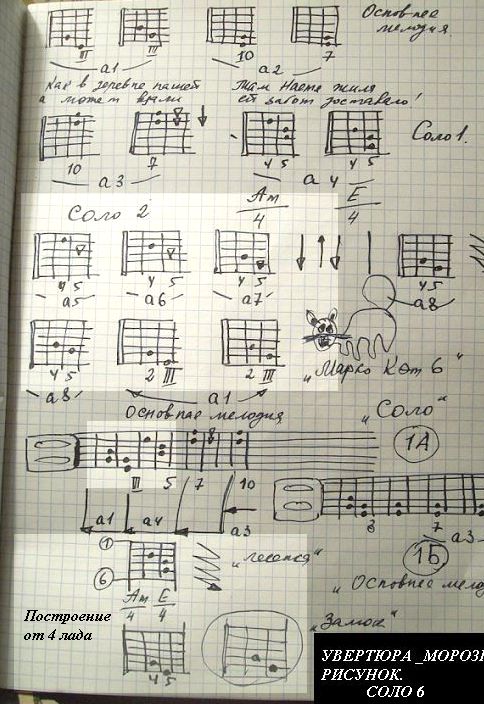 Основнее
мелодия.
III III 10 7
a1 a2
Как в деревне нашей Там Настя жила
а может врали ей забот доставало!
Соло 1.
10 7 4 5 4 5
a3 a 4
Соло 2 Am E
4 4
4 5 4 5 4 5 4 5
a5 a6 a7 a8
4 5 2 III 2 III
a8 a1 „Марко Кот 6"
Основнае мелодия „Соло"
1А
III 5 7 10
a1 a4 a3
3 7
a3
1Б
1
6 „лесенка"
Am E „Основнее мело
4 4
Построение
от 4 лада
„Замок"
a
4 5
УВЕРТЮРА _МОРОЗК
РИСУНОК.
СОЛО 6